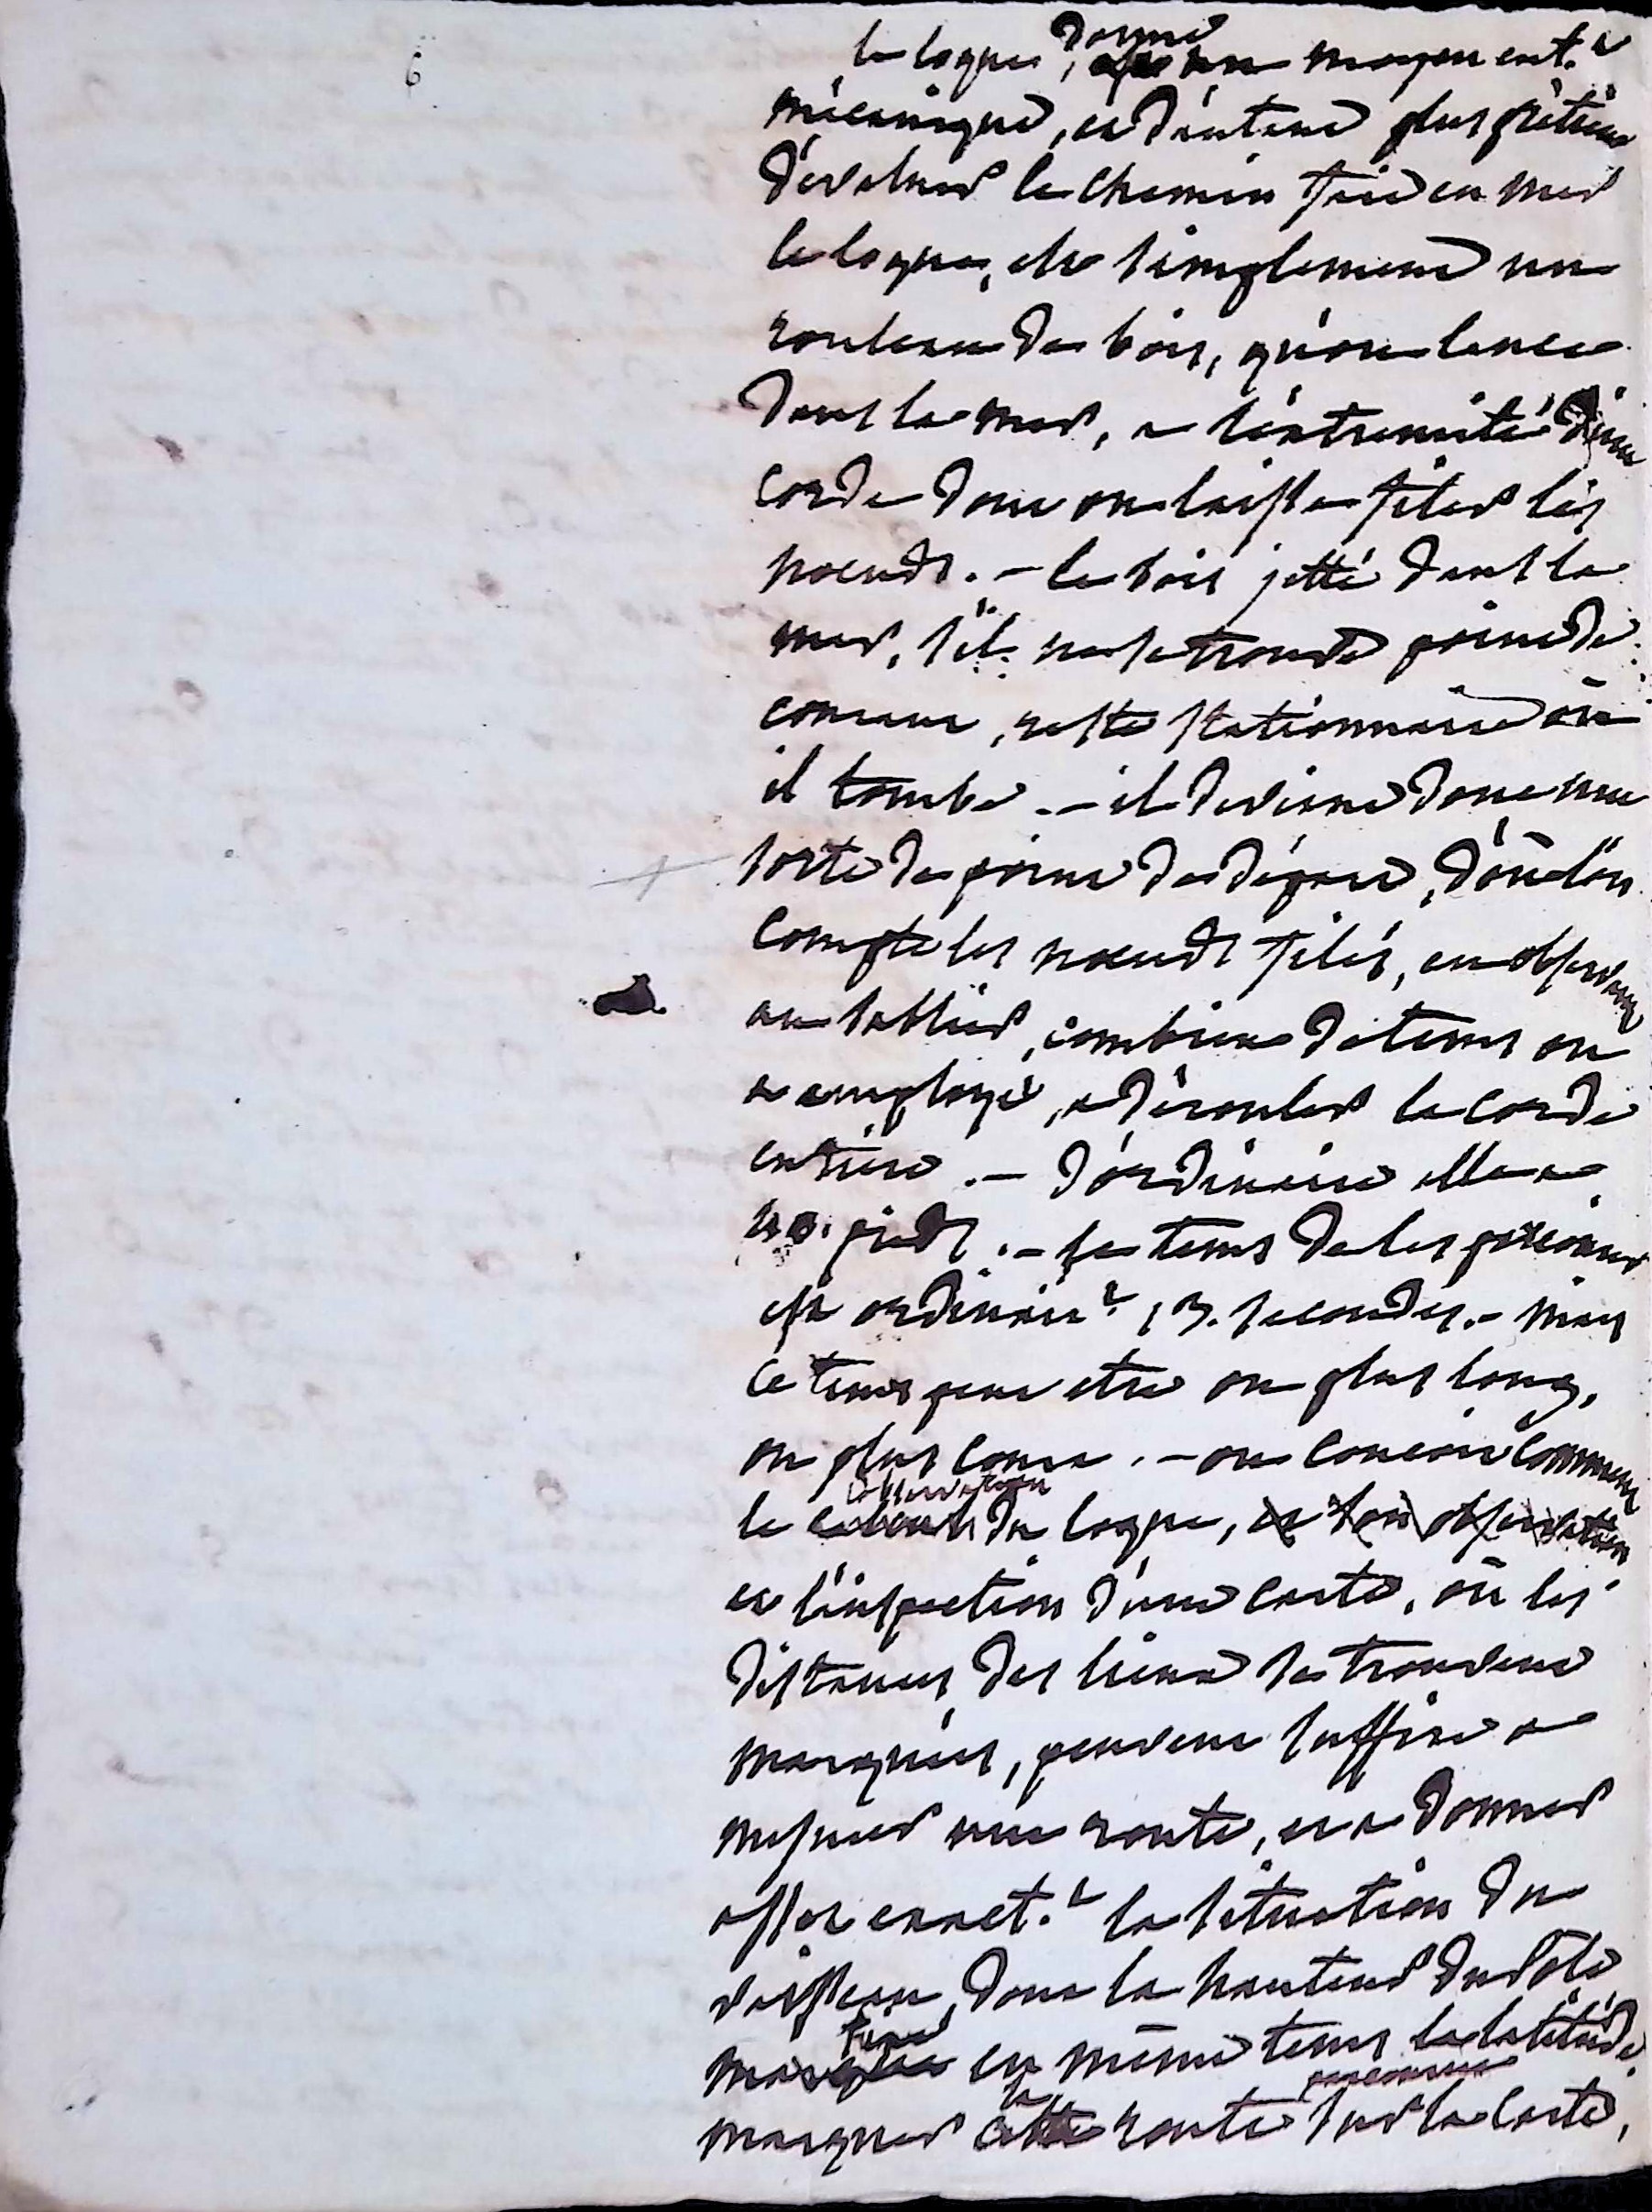 6
le loque, donne un moyen ent.t
mécanique, et d'autant plus prétieux
d'évaluer le chemin fait en mer
le loque, est simplement un
rouleau de bois, qu'on lance
dans la mer, a l'extremité d'une
corde dont on laisse filer les
noeuds. - le bois jetté dans la
mer, s'il ne se trouve point de
courant, reste stationnaire où
il tombe. - il devient donc une
sorte de point de départ, d'où l'on
compte les noeuds filés, en observant
au sablier, combien de tems on
a employé, a dérouler la corde
entière. - d'ordinaire elle a
pieds. - le tems de les parcourir
est ordinair.t secondes. - mais
ce tems peut etre ou plus long,
ou plus court. - on concoit comment
l'observation
le calcul du loque, et son observation
et l'inspection d'une carte, où les
distances des lieux se trouvent
marquées, peuvent suffire a
mesurer une route, et a donner
assez exact.t la situation du
vaisseau, dont la hauteur du Pole
fixe
marque en même tems la latitude.
la parcourue
marquer cette route sur la carte,